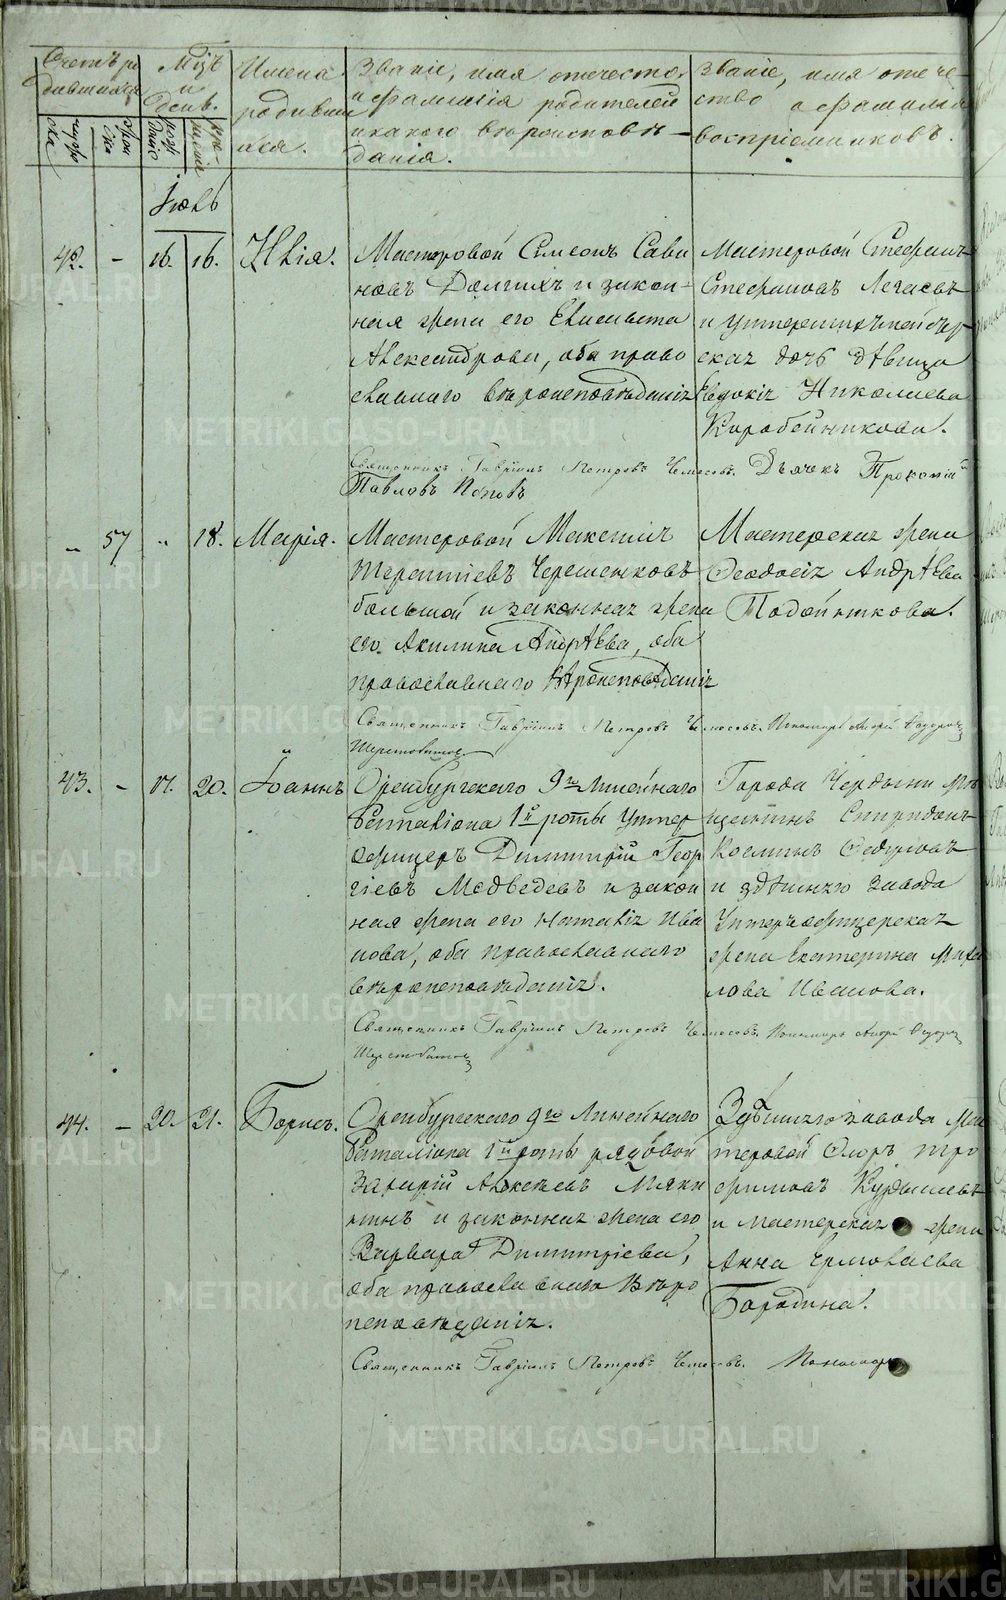 METRIKI.GASO-URAL.RU
Счетъ ро
дившихся
Мѣсяцъ
и
день.
Имена
родивших
ся.
Званіе, имя отечество
и фамилія родителей
и какого вѣроисповѣ-
данія.
Званіе, имя отече-
ство и фамилія
воспріемниковъ.
Іюль
42. - 16. 16. Илія.
Мастеровой Симеонъ Сави
новъ Долгихъ и закон-
ная жена его Елисавета
Александрова, оба право
славнаго вѣроисповѣданія
Мастеровой Стефанъ
Стефановъ
и унтершихтмейстер
ская дочь дѣвица
Евдокія Николаева
Коробейникова.
Священникъ Гавріилъ Петровъ Дьячекъ Прокопій
Павловъ Поповъ
„ 57 „ 18. Марія.
Мастеровой Максимъ
Терентіевъ Черепенковъ
большой и законная жена
его Акилина Андрѣева, оба
православнаго вѣроисповѣданія
Мастерская жена
Ѳеодосія Андрѣева
Подойникова.
Священникъ Гавріилъ Петровъ Пономарь Андрей Ѳедоровъ
Шерстобитовъ
43. - 17. 20. Іоаннъ
Оренбургскаго 9го Линейнаго
Баталіона 1й роты Унтер
офицеръ Димитрій Геор
гіевъ Медведевъ и закон
ная жена его Наталія Ива
нова, оба православнаго
вѣроисповѣданія.
Города Чердыни мѣ
щанинъ Спиридонъ
Косминъ Ѳедуловъ
и здѣшняго завода
Унтеръ офицерская
жена Екатерина Михаи
лова Иванова.
Священникъ Гавріилъ Петровъ Пономарь Андрей Ѳедоровъ
Шерстобитовъ
44. - 20. 21. Борисъ.
Оренбургскаго 9го Линейнаго
Баталіона 1й роты рядовой
Захарій Алексѣевъ Мяки
нинъ и законная жена его
Варвара Димитріева,
оба православнаго вѣро
исповѣданія.
Здѣшняго завода Мас
теровой Флоръ Тро
фимовъ
и мастерская жена
Анна Ермолаева
Бородина.
Священникъ Гавріилъ Петровъ Пономарь